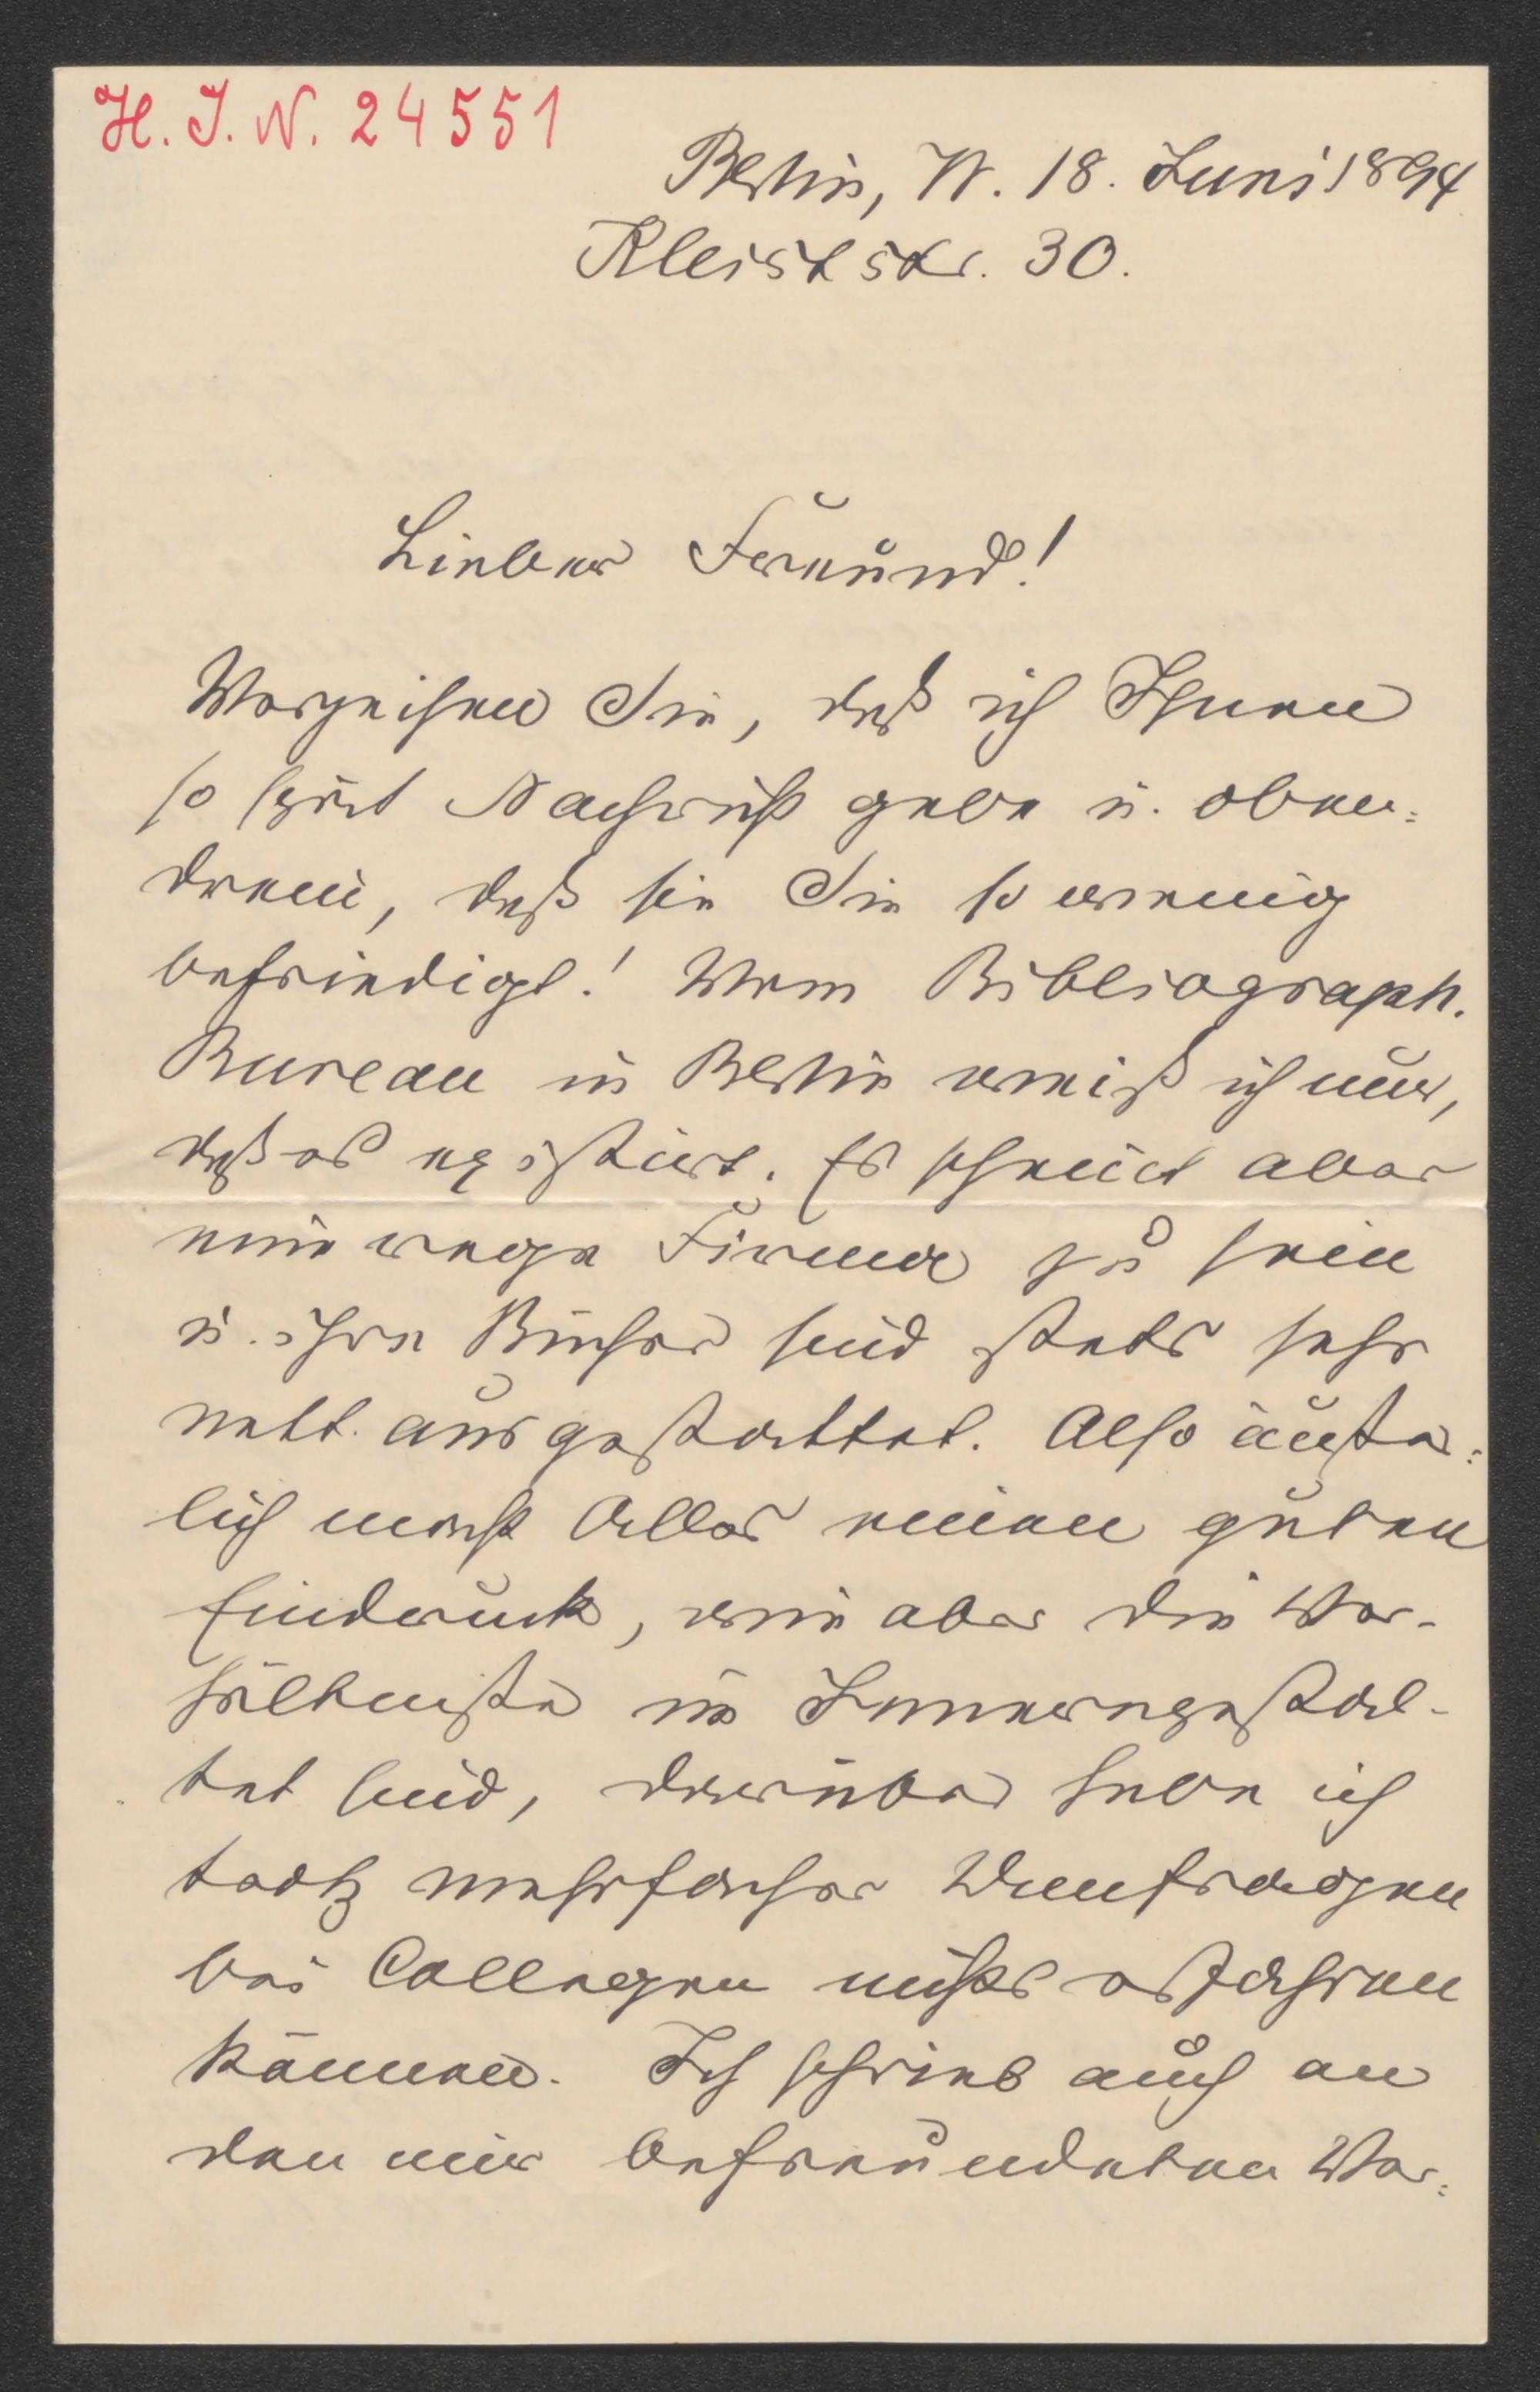 H. I. N. 24551
Berlin, W. 18. Juni 1894
Kleiststr. 30.
Lieber Freund!
Verzeihen Sie, daß ich Ihnen
so spät Nachricht gebe u. oben=
drein, daß sie Sie so wenig
befriedigt! Vom Bibliograph.
Bureau in Berlin weiß ich nur,
daß es existirt. Es scheint aber
eine rege Firma zu sein
u. ihre Bücher sind stets sehr
nett ausgestattet. Also äußer=
lich macht Alles einen guten
Eindruck, wie aber die Ver-
hältnisse im Innern gestal-
tet sind, darüber habe ich
trotz mehrfacher Umfragen
bei Collegen nichts erfahren
können. Ich schrieb auch an
den mir befreundeten Ver=